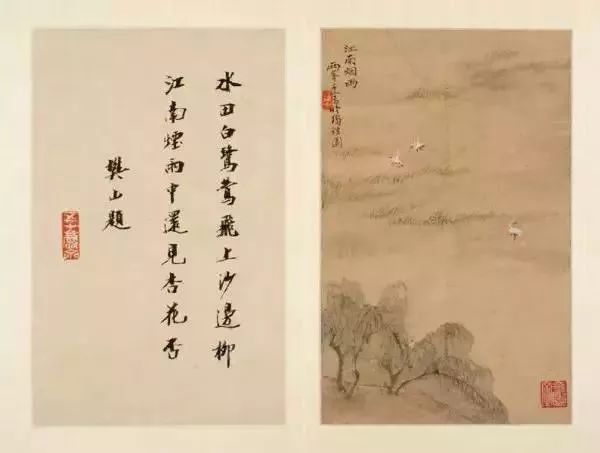 江南烟雨
水田白鷺鷥飛上沙邊柳
江南煙雨中還見杏花否
樊山題